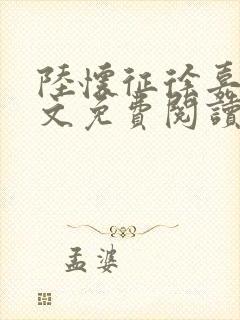 陸懷征徐嘉
文免費閱讀
孟婆